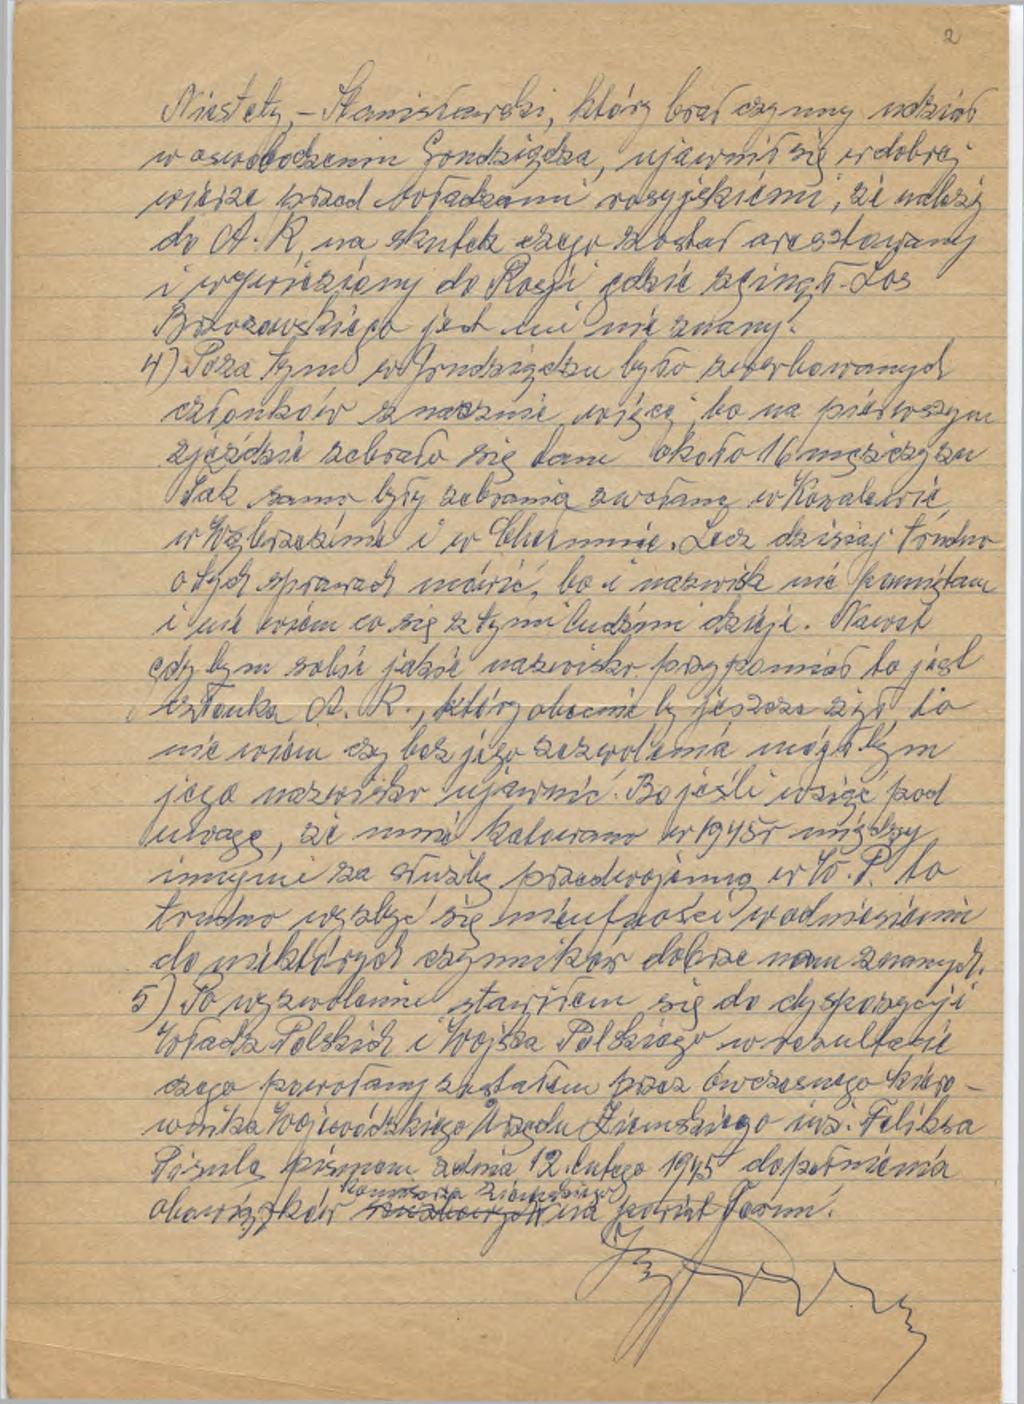 2
Niestety, – Stanisławski, który brał czynny udział
w oswobodzeniu Grudziądza, ujawnił się w dobrej
wierze przed władzami rosyjskiemi, że należy
do A.K, na skutek czego został aresztowany
i wywieziony do Rosji gdzie zginął. Los
Brzozowskiego jest mi nie znany.
4) Poza tym w Grudziądzu było zwerbowanych
członków znacznie więcej, bo na pierwszym
zjeździe zebrało się tam około 16 mężczyzn
Tak samo były zebrania zwołane w Kowalewie,
w Wąbrzeźnie i w Chełmnie. Lecz dzisiaj trudno
o tych sprawach mówić, bo i nazwisk nie pamiętam
i nie wiem co się z tymi ludźmi dzieje. Nawet
gdybym sobie jakie nazwisko przypomniał to jest
członka A.K., który obecnie by jeszcze żył, to
nie wiem czy bez jego zezwolenia mógłbym
jego nazwisko ujawnić. Bo jeśli wziąć pod
uwagę, że mnie katowano w 1945r między
innymi za służbę przedwojenną w W.P. to
trudno wyzbyć się nieufności w odniesieniu
do niektórych czynników dobrze nam znanych.
5) Po wyzwoleniu stawiłem się do dyspozycji
Władz Polskich i Wojska Polskiego w rezultacie
czego powołany zostałem przez ówczesnego kiero-
wnika Wojewódzkiego Urzędu Ziemskiego inż. Feliksa
Pisulę pismem z dnia 12. lutego 1945 do pełnienia
Komisarza Ziemskiego
obowiązków na powiat Toruń.